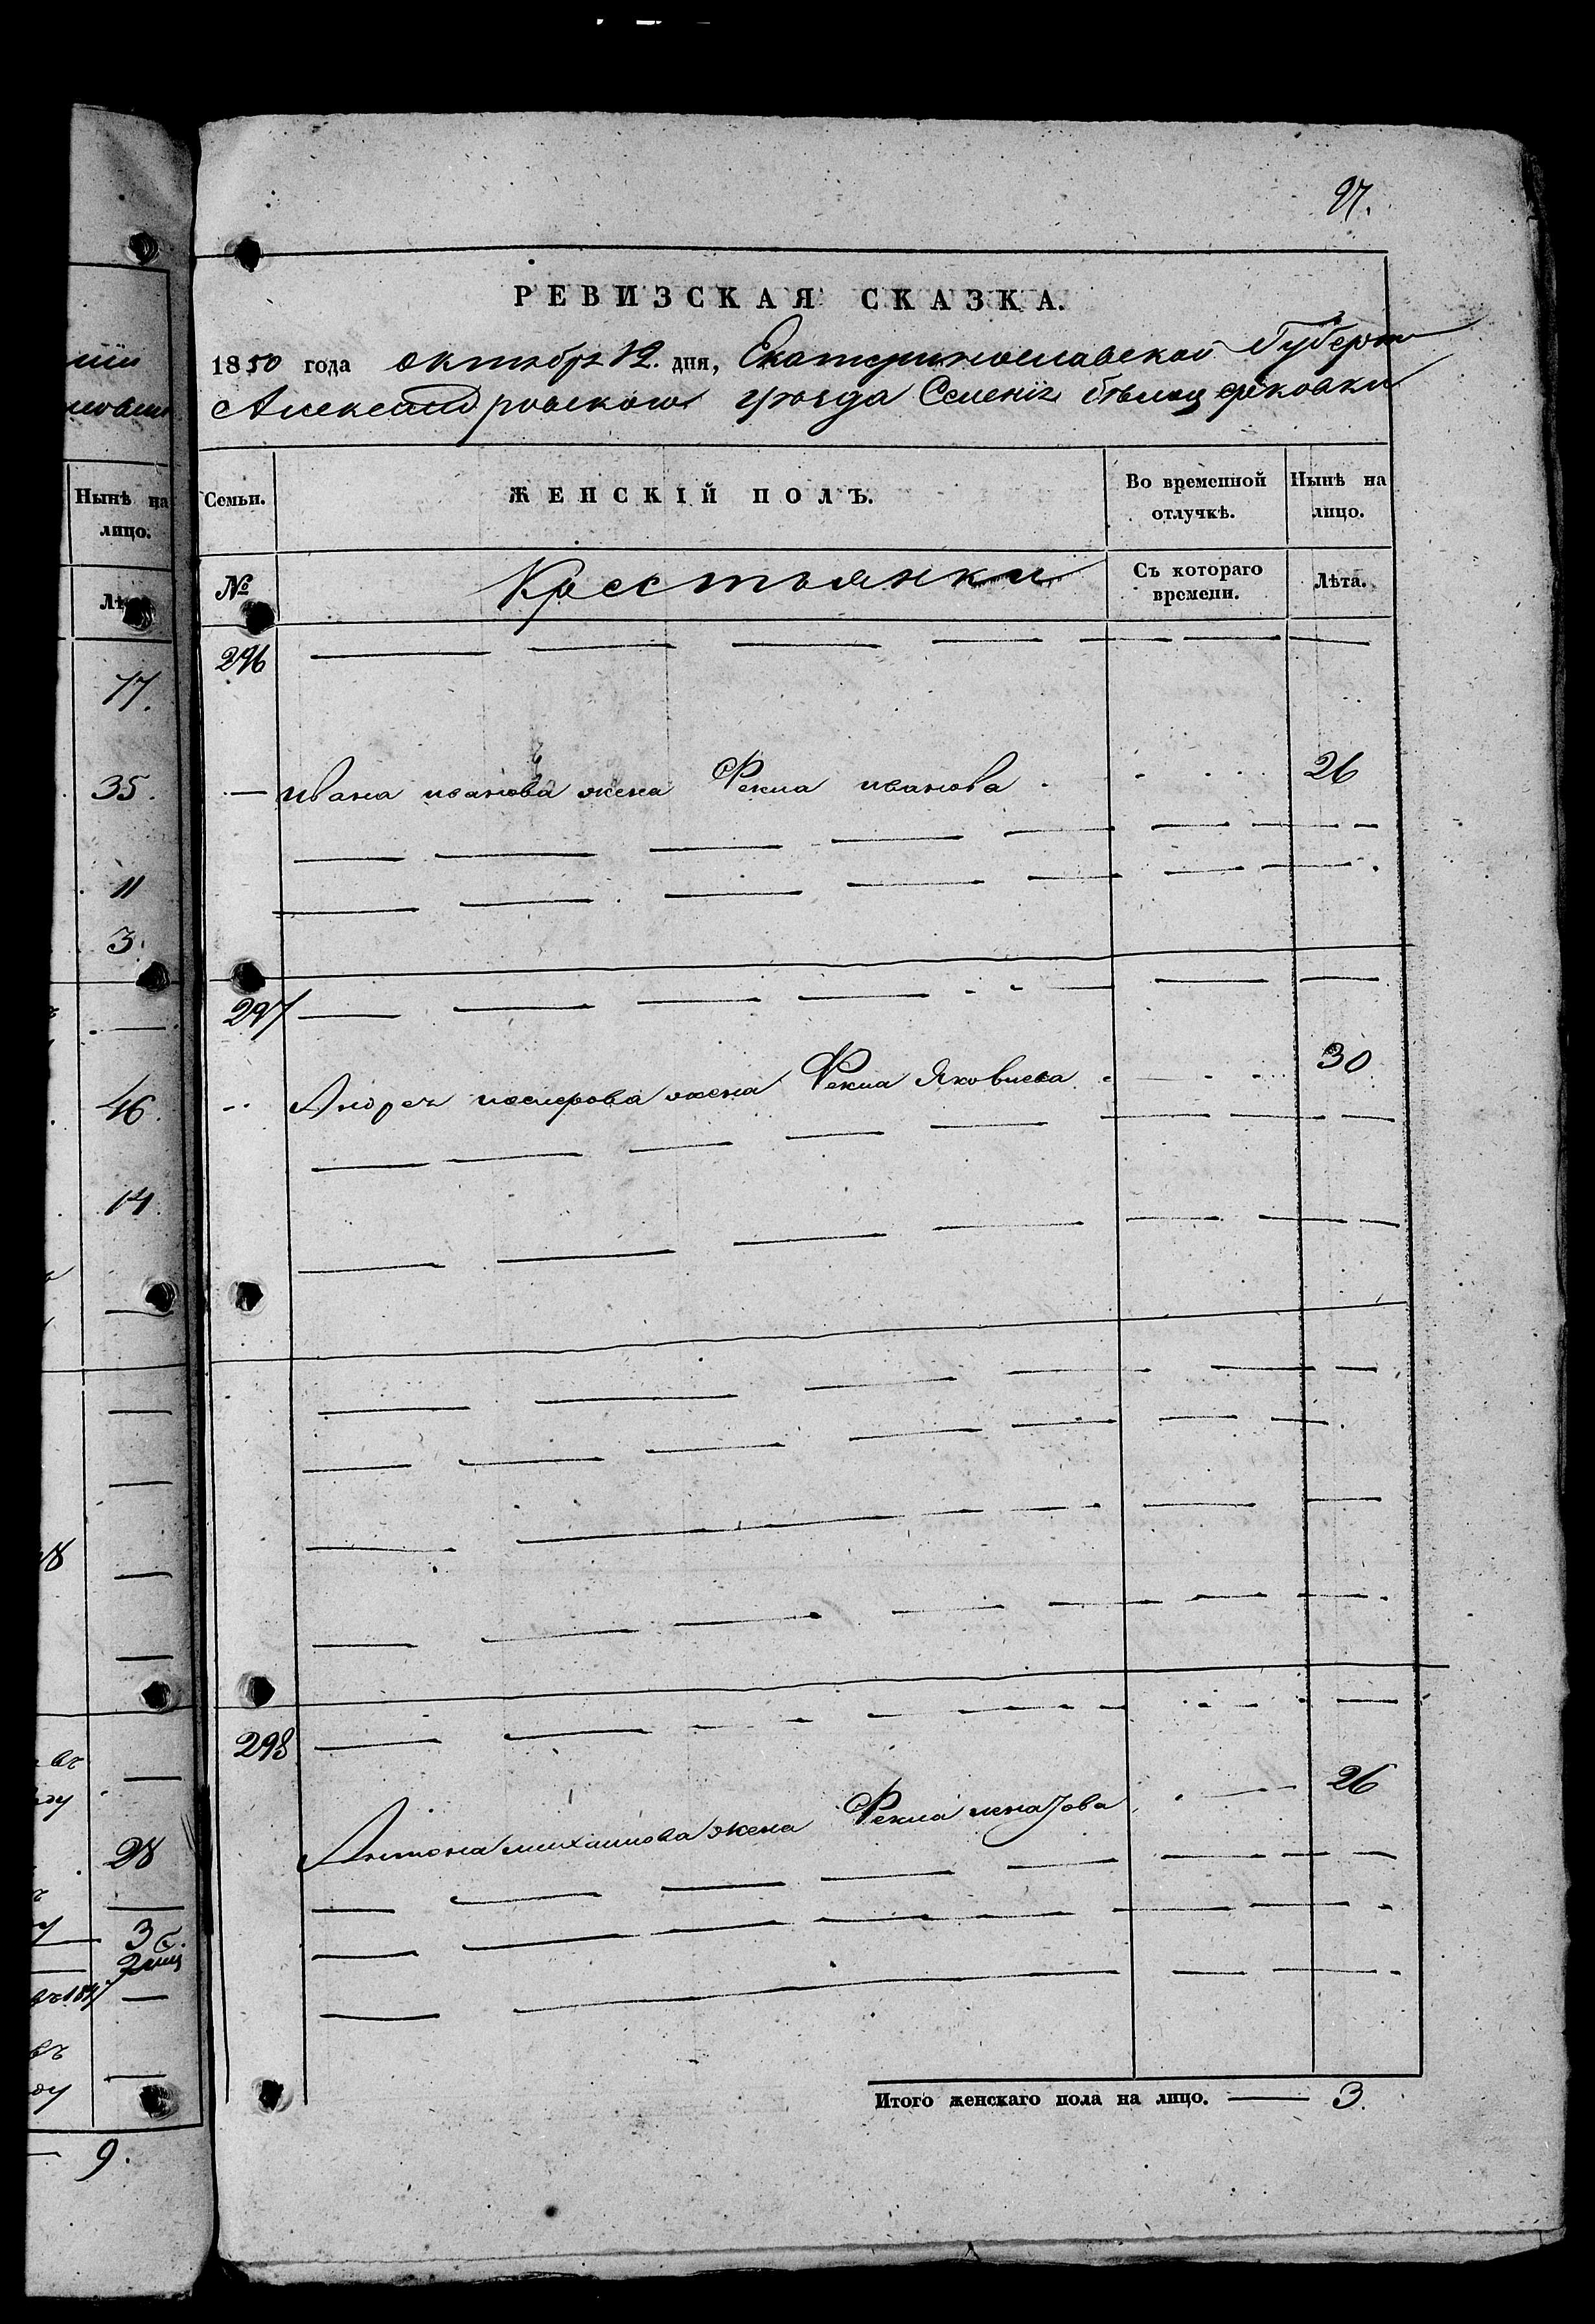 97.
РЕВИЗСКАЯ СКАЗКА.
1850 года октября 12. дня, Екатеринославской Губерни
Александровского уезда Селения Бѣлоцерковки
Нынѣ на
лицо.
Семьи.
ЖЕНСКІЙ ПОЛЪ.
Во временной
отлучкѣ.
Нынѣ на
лицо.
№
Крестьянки
Съ котораго
времени.
Лѣта.
296
77.
35.
Ивана иванова жена Фекла иванова
26
11
3.
297
Андрея жена Фекла Яковлева
30
46
14
298
28
Антона михаилова жена Фекла
26
Итого женскаго пола на лицо. — 3.
9.